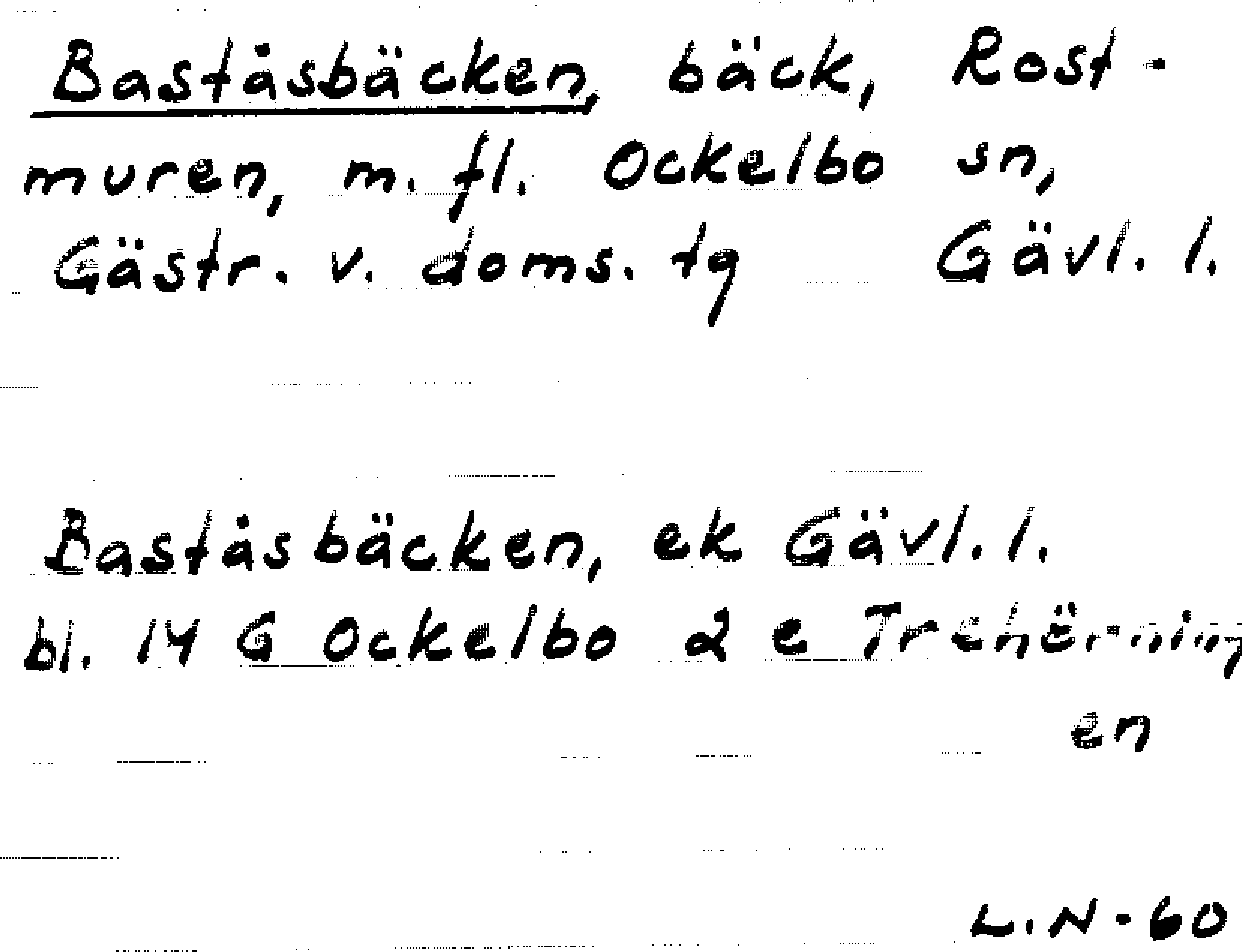 Baståsbäcken, bäck, Rost-
muren, m. fl. Ockelbo sn,
Gästr. v. doms. tg Gävl. l.
Baståsbäcken, ek Gävl. l.
bl. 14 G Ockelbo 2 e Trehörning
en
L.N-60